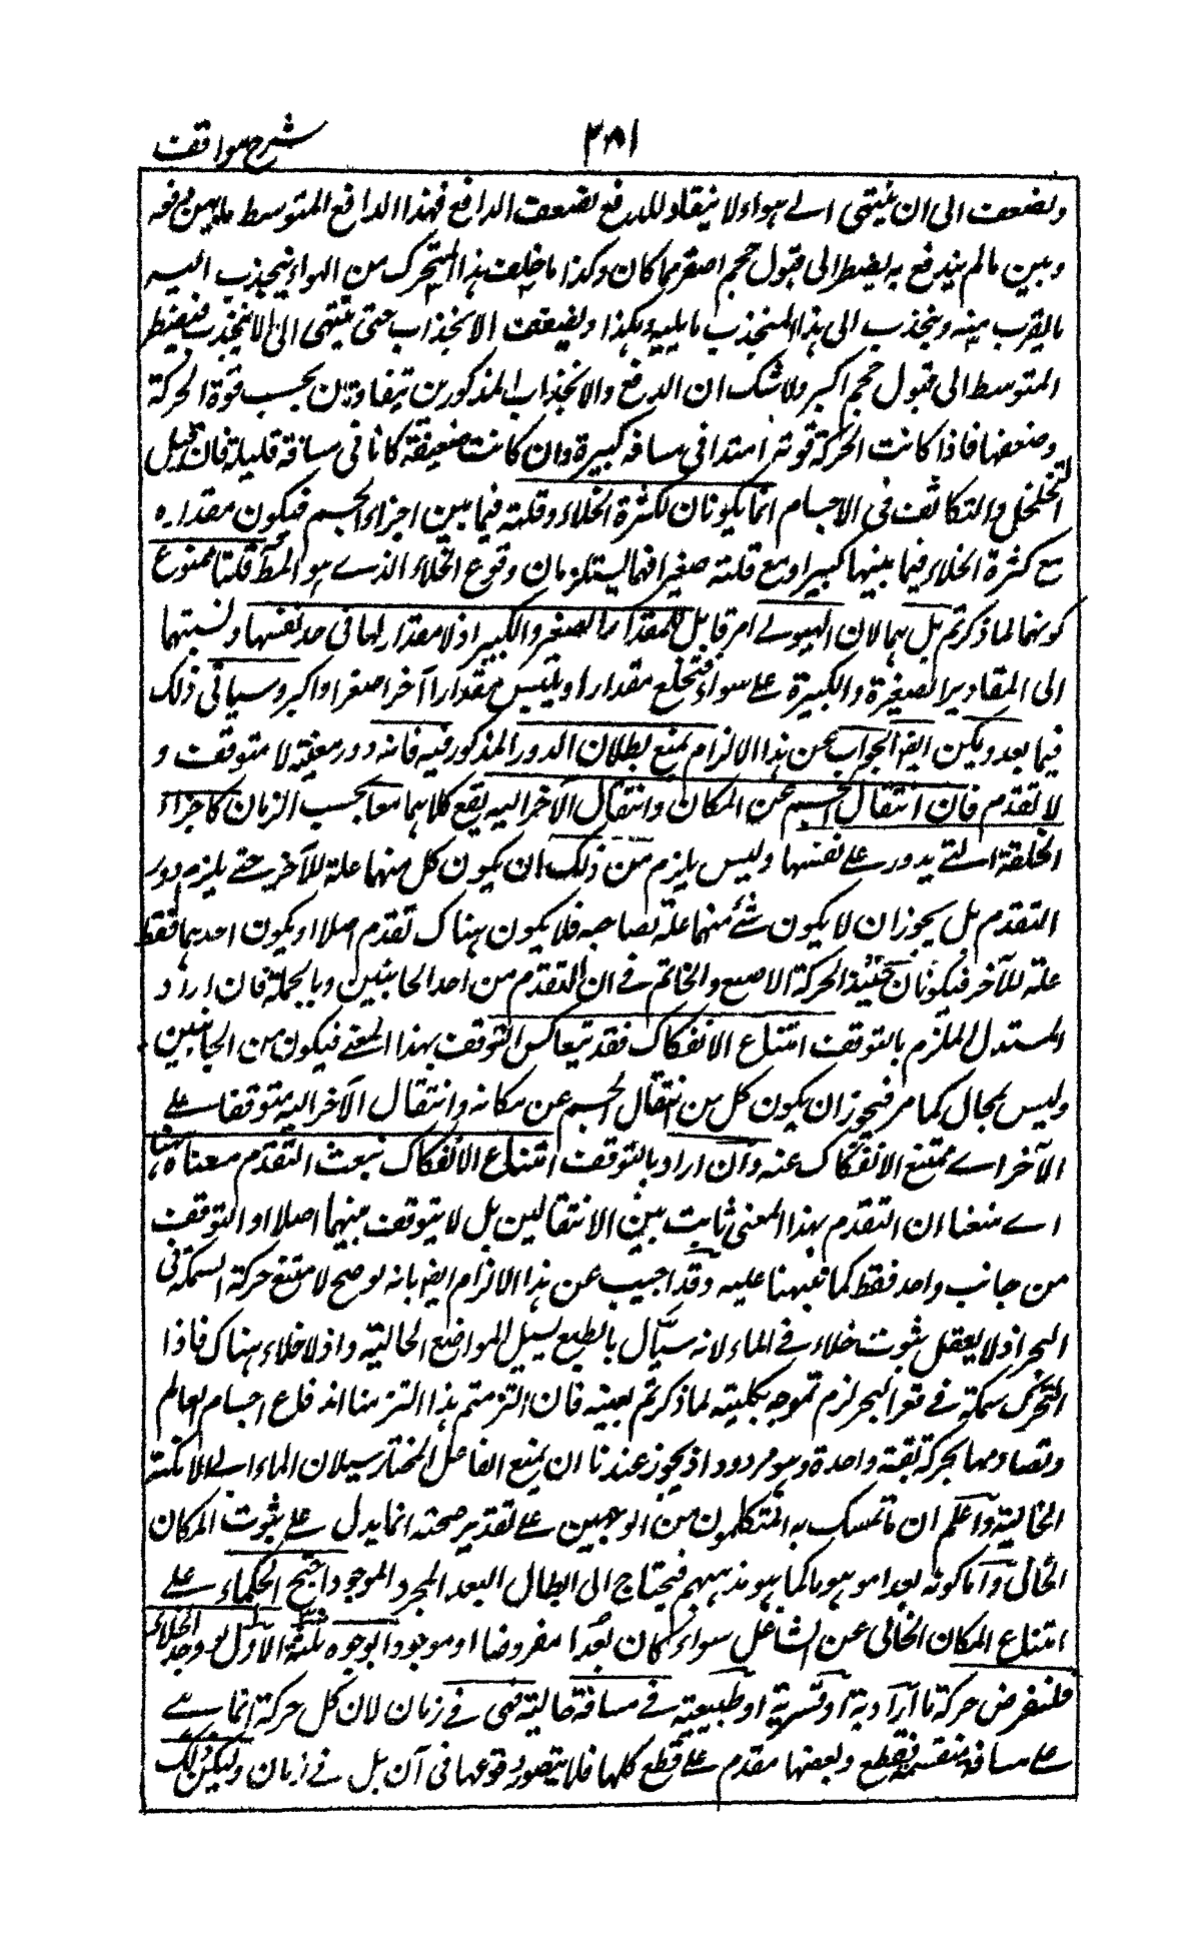 شرح مواقف
٢٨١
ويضعف الى ان ينتهى الے هواء لا ينقاد للدفع لضعف الدافع فهذا الدافع المتوسط ما بين مدفعه
وبين ما لم يندفع به يضطر الى قبول حجم اصغر مما كان وكذا ما خلف هذا المتحرك من الهواء ينجذب اليه
ما يقرب منه وينجذب الى هذا المنجذب ما يليه وهكذا ويضعف الانجذاب حتى ينتهى الى ما لا ينجذب فيضطر
المتوسط الى قبول حجم اكبر ولا شك ان الدفع والانجذاب المذكورين يتفاوتان بحسب قوة الحركة
وضعفها فاذا كانت الحركة قوية امتدا فى مسافة كبيرة وان كانت ضعيفة كانا فى مسافة قليلة فان قيل
التخلخل والتكاثف فى الاجسام انما يكونان لكثرة الخلاء وقلته فيما بين اجزاء الجسم فيكون مقداره
مع كثرة الخلاء فيما بينها كبيرا ومع قلته صغيرا فهما يستلزمان وقوع الخلاء الذے هو المط قلنا ممنوع
كونهما لما ذكرتم بل هما لان الهيولے امر قابل للمقدار الصغير والكبير اذ لا مقدار لها فى حد نفسها ونسبتها
الى المقادير الصغيرة والكبيرة علے سواء فتخلع مقدارا وتلبس مقدارا آخر اصغر او اكبر وسياتى ذلك
فيما بعد ويمكن ايضا الجواب عن هذا الالزام بمنع بطلان الدور المذكور فيه فانه دور معية لا متوقف و
لا تقدم فان انتقال الجسم عن المكان وانتقال الآخر اليه يقع كلاهما معا بحسب الزمان كاجزاء
الحلقة التے يدور علے نفسها وليس يلزم من ذلك ان يكون كل منهما علة للآخر حتے يلزم دور
التقدم بل يجوز ان لا يكون شئ منهما علة لصاحبه فلا يكون هناك تقدم اصلا او يكون احدهما فقط
علة للآخر فيكونان حينئذ كحركة الاصبع والخاتم فے ان التقدم من احد الجانبين وبالجملة فان اراد
المستدل الملزم بالتوقف امتناع الانفكاك فقد يتعاكس التوقف بهذا المعنے فيكون من الجانبين
وليس بمحال كما مر فيجوز ان يكون كل من انتقال الجسم عن مكانه وانتقال الآخر اليه متوقفا علے
الآخر اے ممتنع الانفكاك عنه وان اراد بالتوقف امتناع الانفكاك بنعت التقدم منعناه ههنا
اے منعنا ان التقدم بهذا المعنى ثابت بين الانتقالين بل لا يتوقف بينهما اصلا او التوقف
من جانب واحد فقط كما نبهنا عليه وقد اجيب عن هذا الالزام ايضا بانه لو صح لامتنع حركة السمكة فى
البحر اذ لا يعقل ثبوت خلاء فے الماء لانه سيّال بالطبع يسيل للمواضع الخالية واذ لا خلاء هناك فاذا
تحرك سمكة فے قعر البحر لزم تموجه بكليته لما ذكرتم بعينه فان التزمتم هذا التزمنا اندفاع اجسام العالم
وتصادمها بحركة بقة واحدة وهو مردود اذ يجوز عندنا ان يمنع الفاعل المختار سيلان الماء الے الامكنة
الخالية واعلم ان ما تمسك به المتكلمون من الوجهين علے تقدير صحته انما يدل علے ثبوت المكان
الخالى واما كونه بعدا موهوما كما هو مذهبهم فيحتاج الى ابطال البعد المجرد الموجود احتج الحكماء علے
امتناع المكان الخالى عن الشاغل سواء كان بعدا مفروضا او موجودا بوجوه ثلثة الاول لو وجد الخلاء
فلنفرض حركة ما ارادية او قسرية او طبيعية فے مسافة خالية فهى فے زمان لان كل حركة انما هے
علے مسافة منقسمة فقطع بعضها مقدم علے قطع كلها فلا يتصور وقوعها فى آن بل فے زمان وليكن ذلك